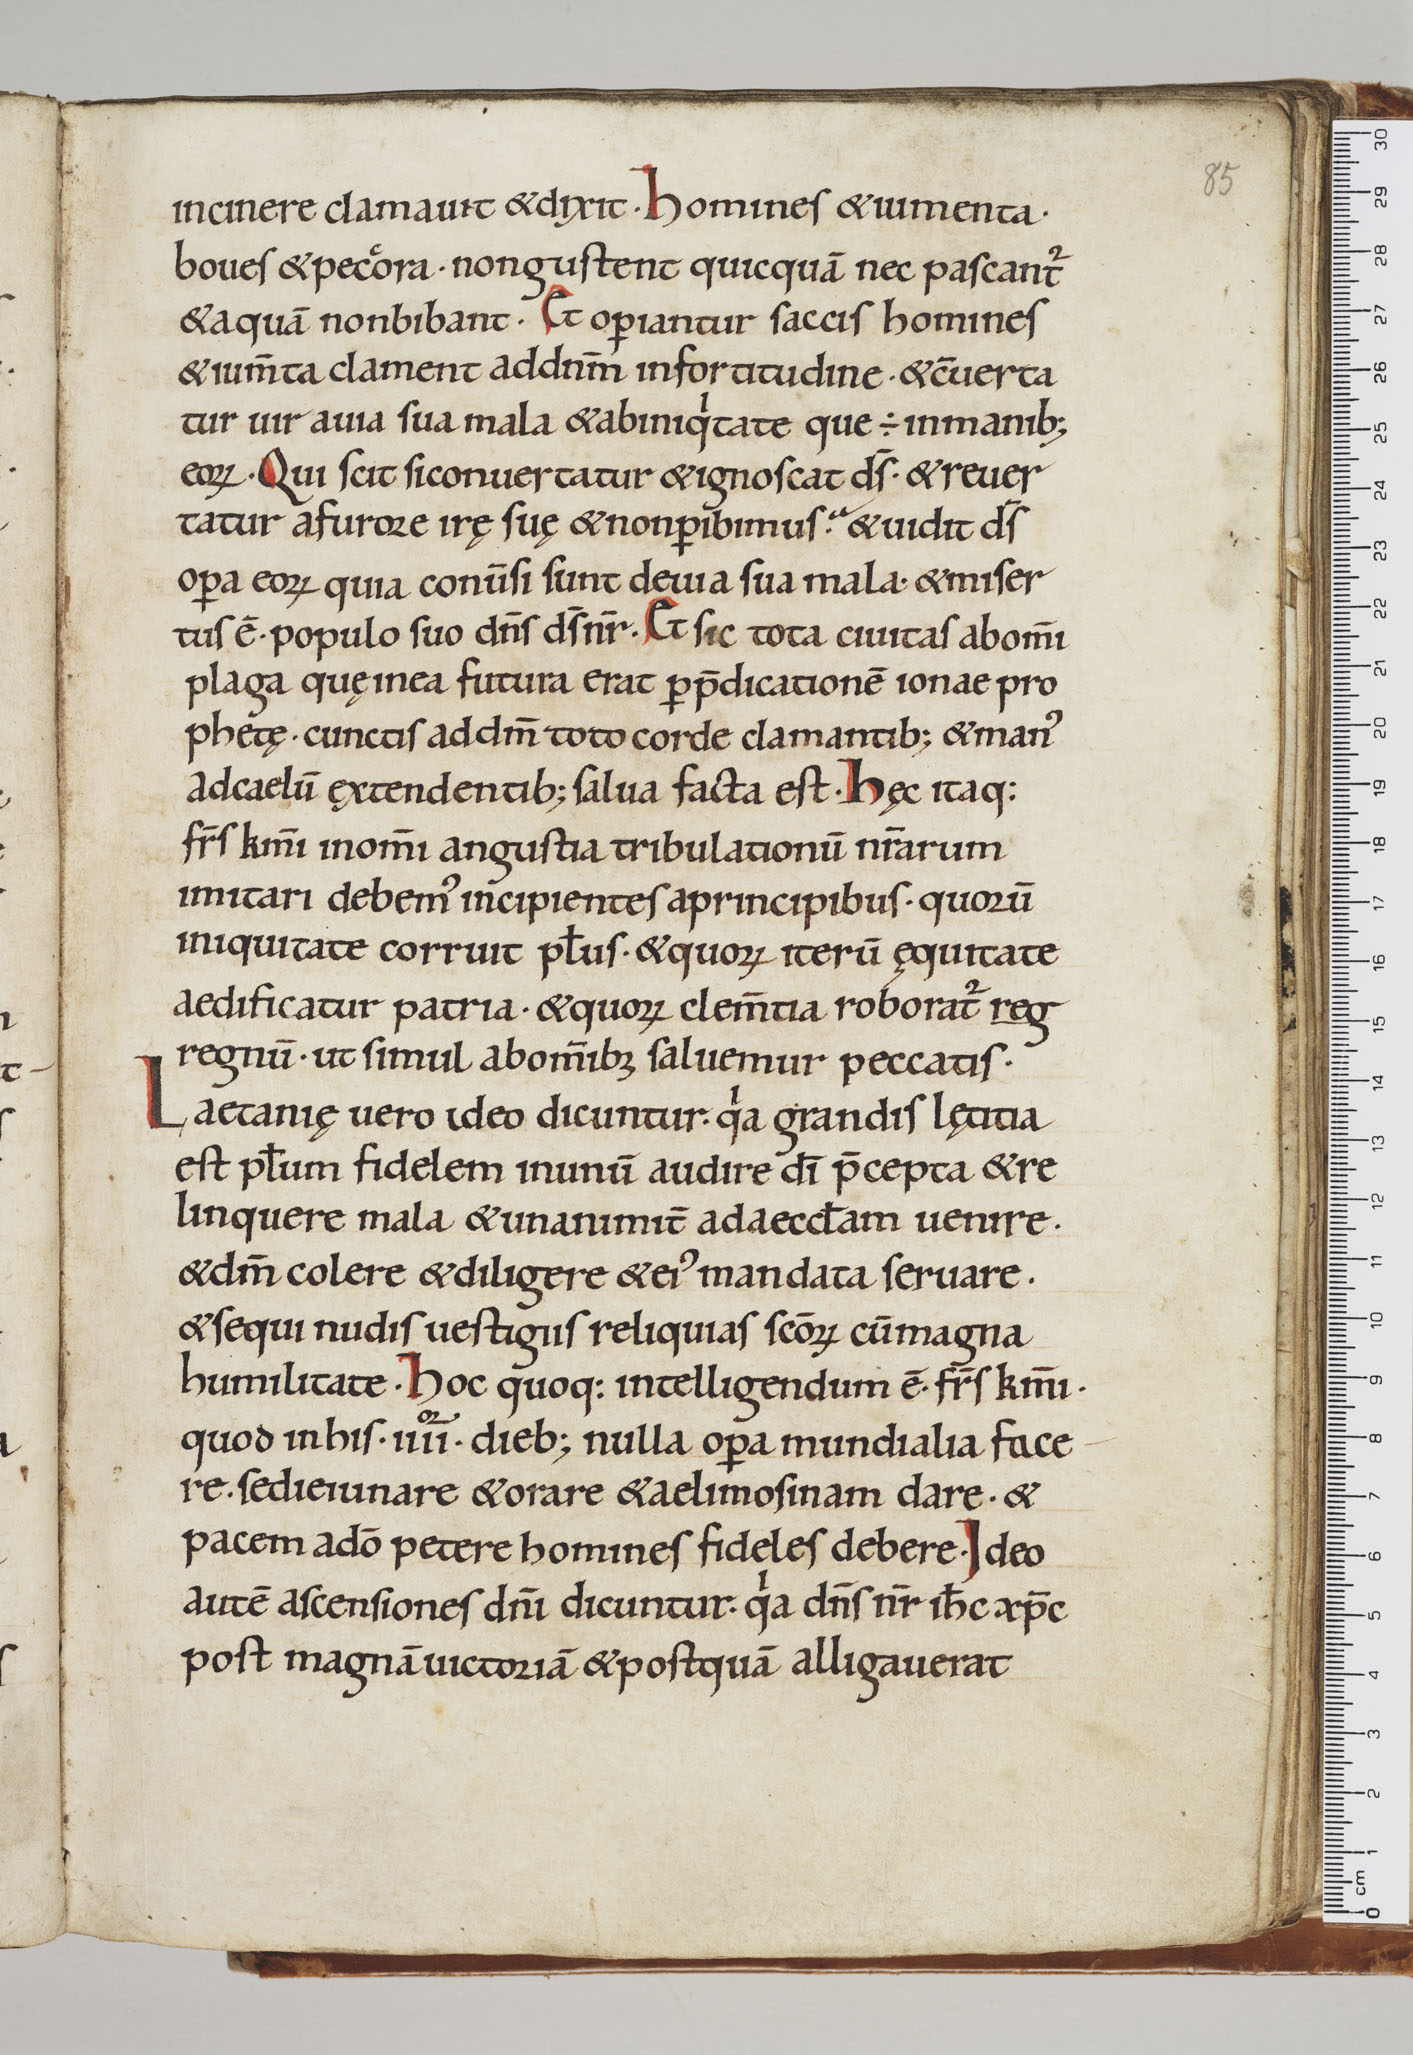 85
incinere clamauit &dixit · homines &iumenta ·
boues &pecora · nongustent quicquā nec pascant᷑
&aquā nonbibant · Et opiantur saccis homines
&ium̄ta clament addnm̄ infortitudine · &c̄uerta
tur uir auia sua mala &abiniqͥtate que ÷ inmanib;
eoꝝ · Qui scit siconuertatur &ignoscat ds̄ · &reuer
tatur afurore irę suę &nonꝑibimus · &uidit ds̄
oꝑa eoꝝ quia conūsi sunt deuia sua mala · &miser
tus ē · populo suo dn̄s ds̄ nr̄ · Et sic tota ciuitas abom̄i
plaga quęinea futura erat ꝑp̄dicationē ionae pro
phetę · cunctis addm̄ toto corde clamantib; &man᾿
adcaelū ęxtendentib; salua facta est · hęc itaq:
fr̄s km̄i inom̄i angustia tribulationū nr̄arum
imitari debem᾿ incipientes aprincipibus · quorū
iniquitate corruit pl̄us · &quoꝝ iterū ęquitate
aedificatur patria · &quoꝝ clem̄tia roborat᷑ reg
regnū · ut simul abom̄ibꝫ saluemur peccatis ·
Laetanię uero ideo dicuntur · qͥa grandis lętitia
est pl̄um fidelem inunū audire dī p̄cepta &re
linquere mala &unanimit̄ adaeccl̄am uenire ·
&dm̄ colere &diligere &ei᾿ mandata seruare ·
&sequi nudis uestigiis reliquias scōꝝ cūmagna
humilitate · hoc quoq: intelligendum ē · fr̄s km̄i ·
quod inhis · iiii · dieb; nulla oꝑa mundialia face
re · sedieiunare &orare &aelimosinam dare · &
pacem adō petere homines fideles debere · Ideo
autē ascensiones dn̄i dicuntur · qͥa dn̄s nr̄ ih̄c xp̄c
post magnā uictoriā &postquā alligauerat